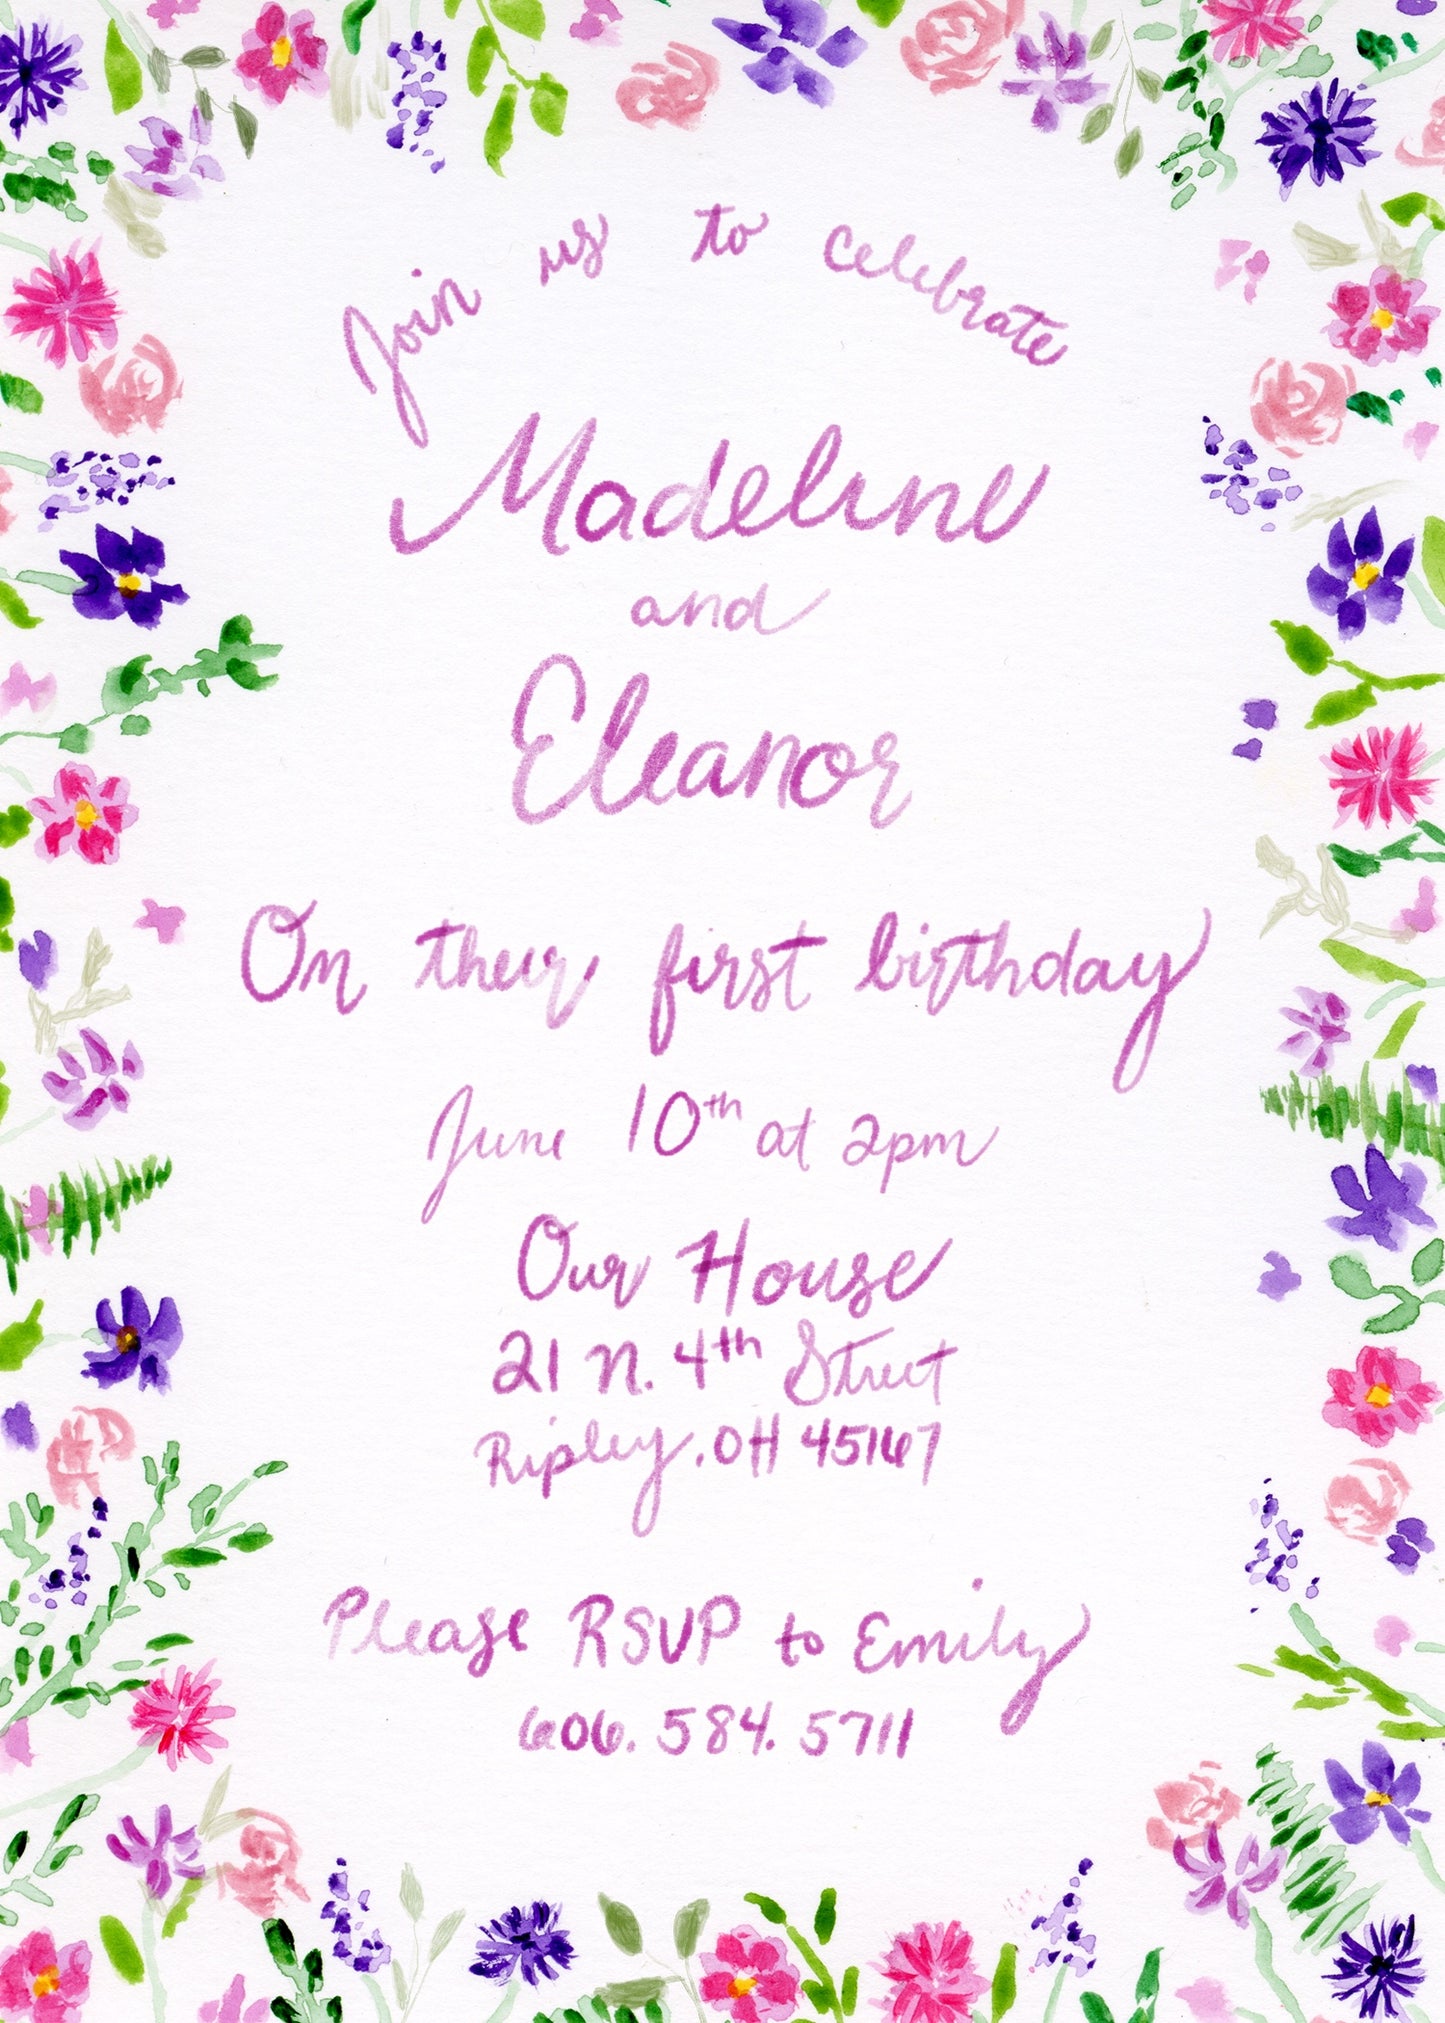 Join us to celebrate
Madeline
and
Eleanor
On their first birthday
June 10th at 2pm
Our House
21 N. 4th Street
Ripley, OH 45167
Please RSVP to Emily
606. 584. 5711